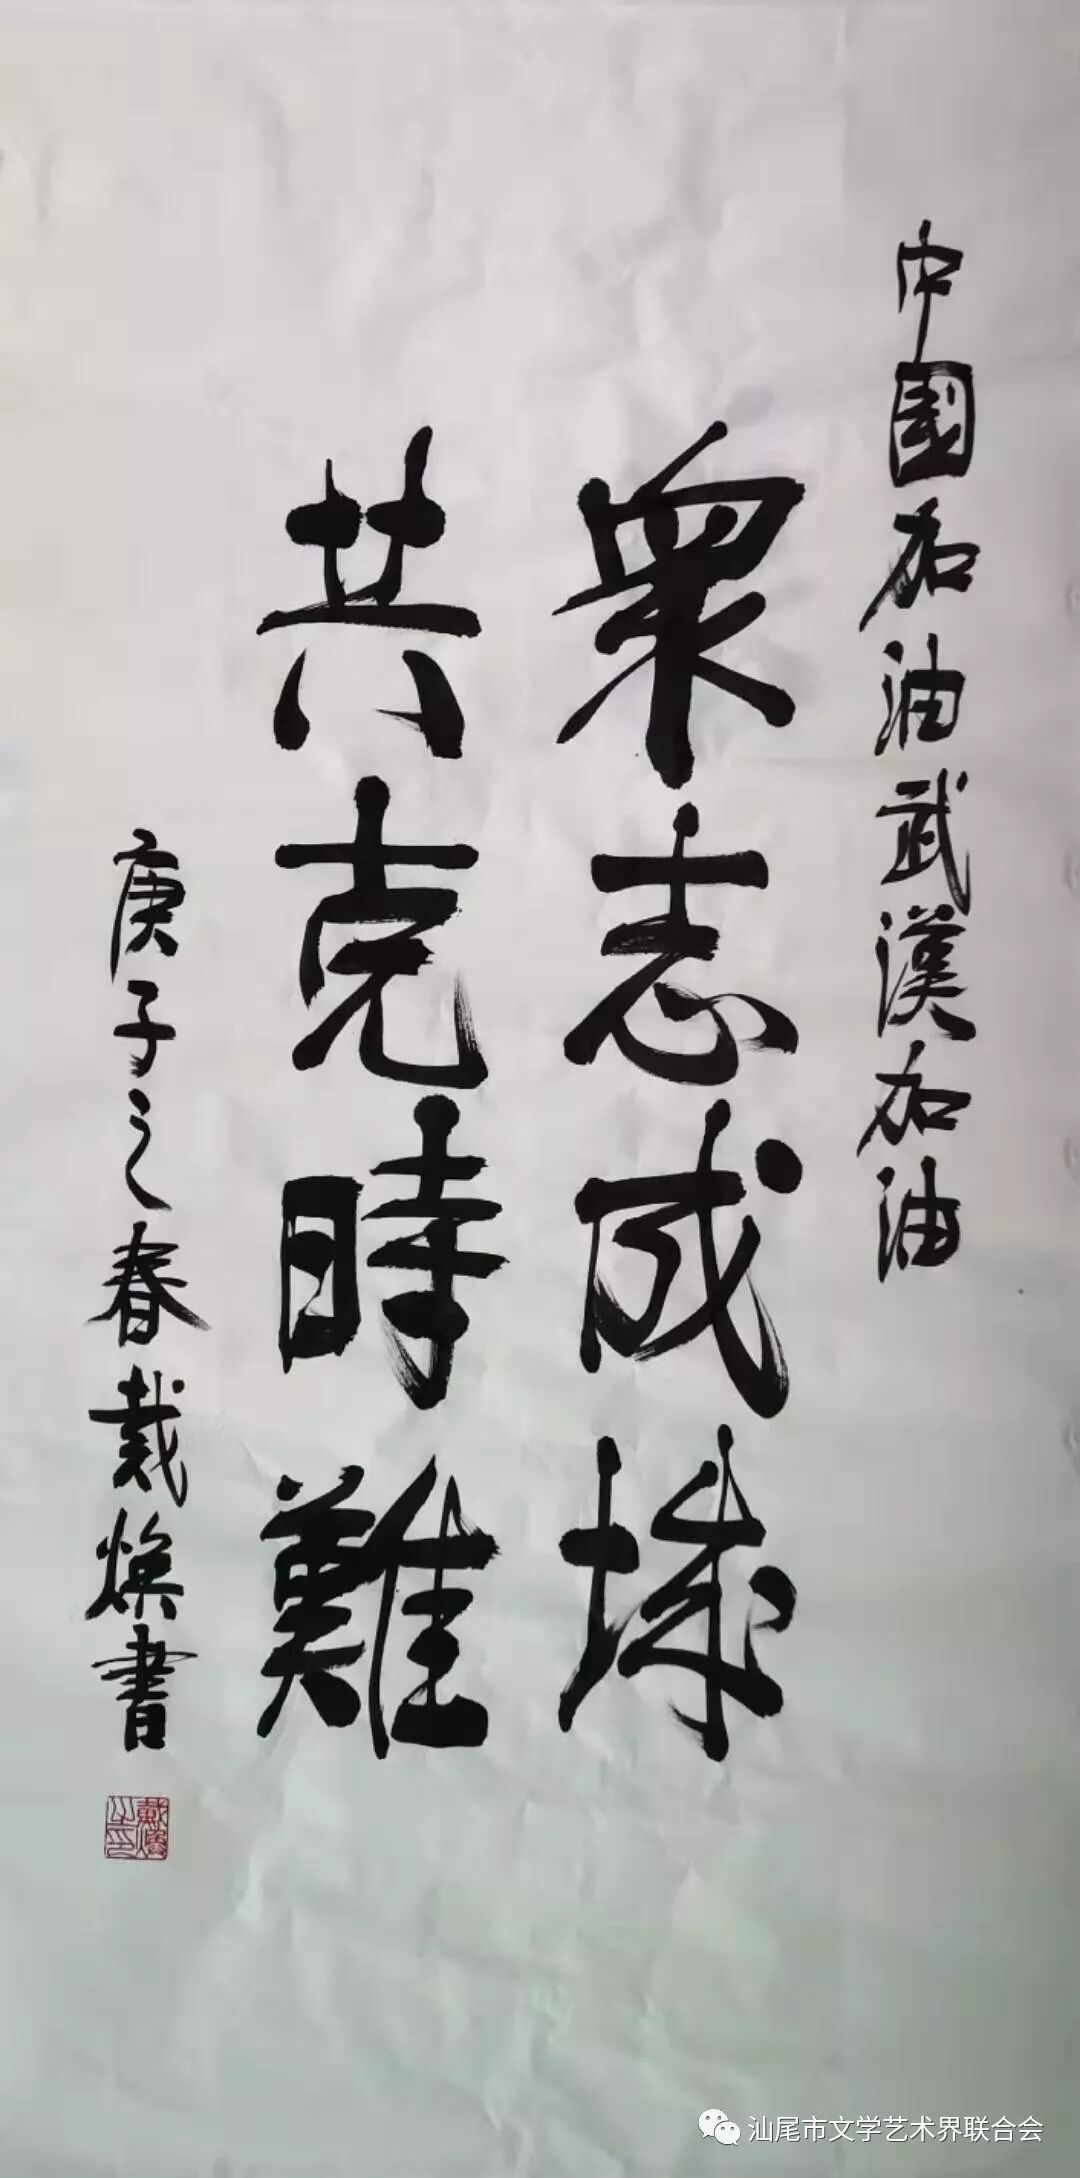 中國加油武漢加油
眾志成城
共克時難
庚子之春戴煥書
戴煥之印
汕尾市文学艺术界联合会